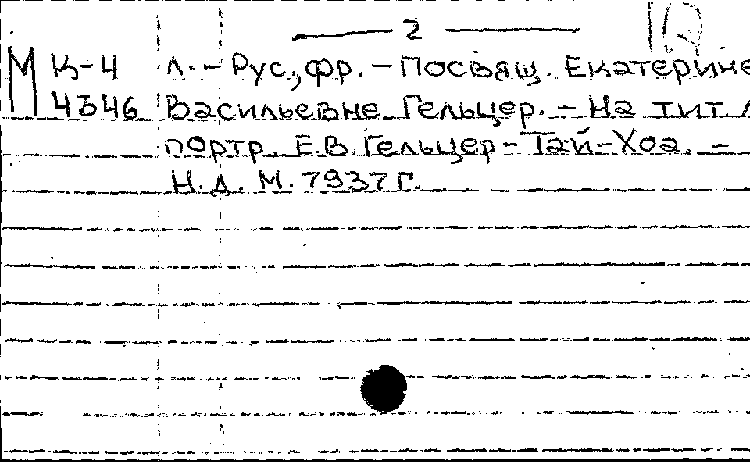 — 2 —
М К-4 л. – Рус., фр. – Посвящ. Екатерине
4346 Васильевне Гельцер. – На тит л
портр. Е.В. Гельцер – Тай-Хоа. –
Н.д. М. 7937 г.